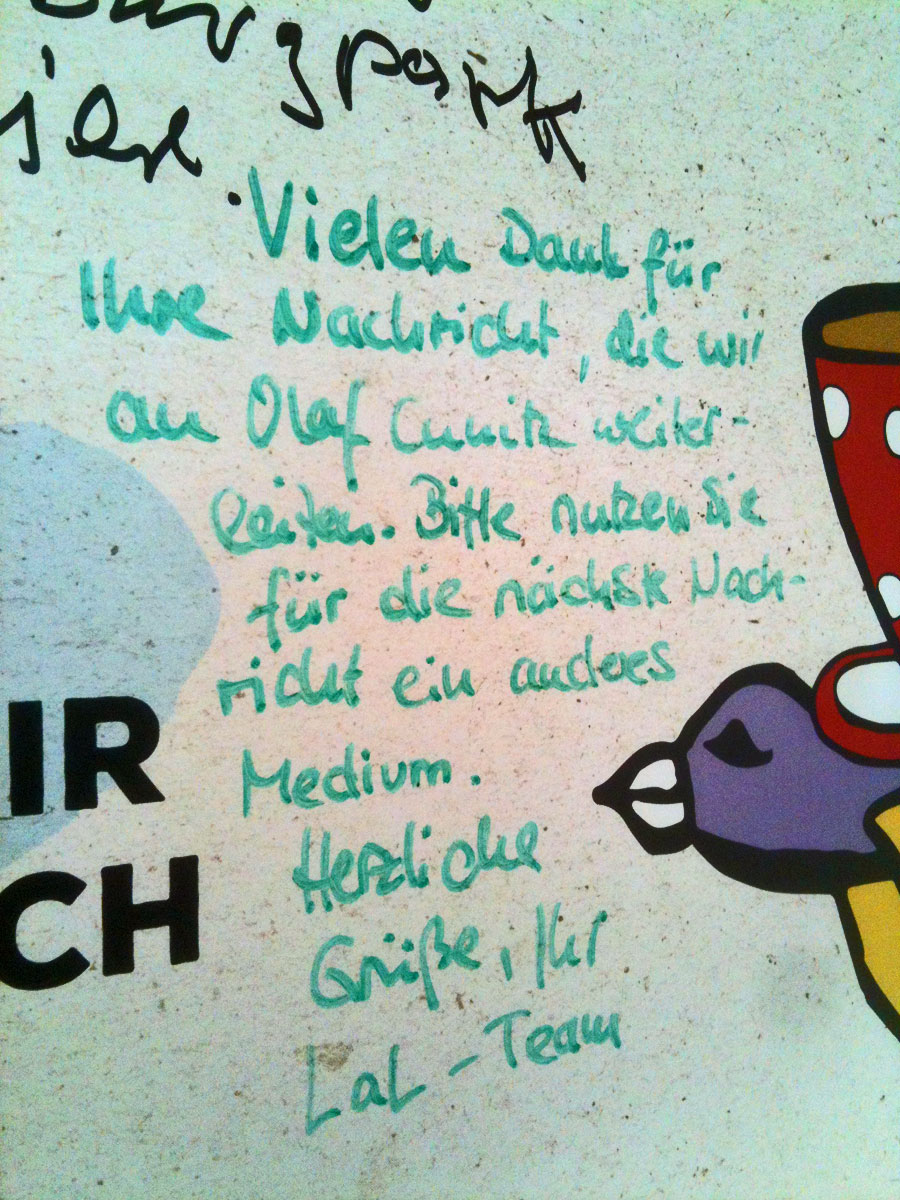 park
Vielen Dank für
Ihre Nachricht, die wir
an Olaf Cunitz weiter-
leiten. Bitte nutzen Sie
für die nächste Nach-
richt ein anderes
Medium.
IR
Herzliche
CH
Grüße, Ihr
LaL-Team